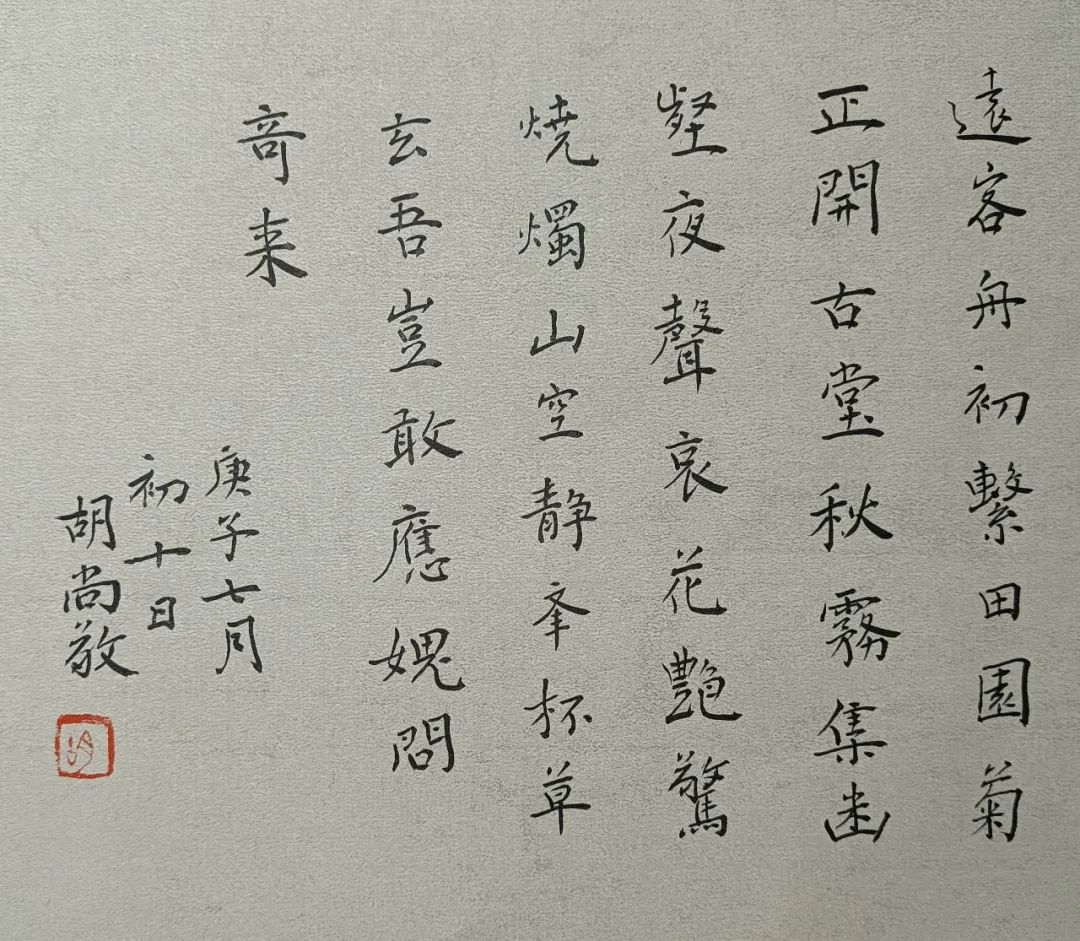 遠客舟初繫田園菊
正開古堂秋霧集幽
壑夜聲哀花艷驚
焼燭山空静杯草
玄吾豈敢應媿問
奇来
庚子七月
初十日
胡尚敬